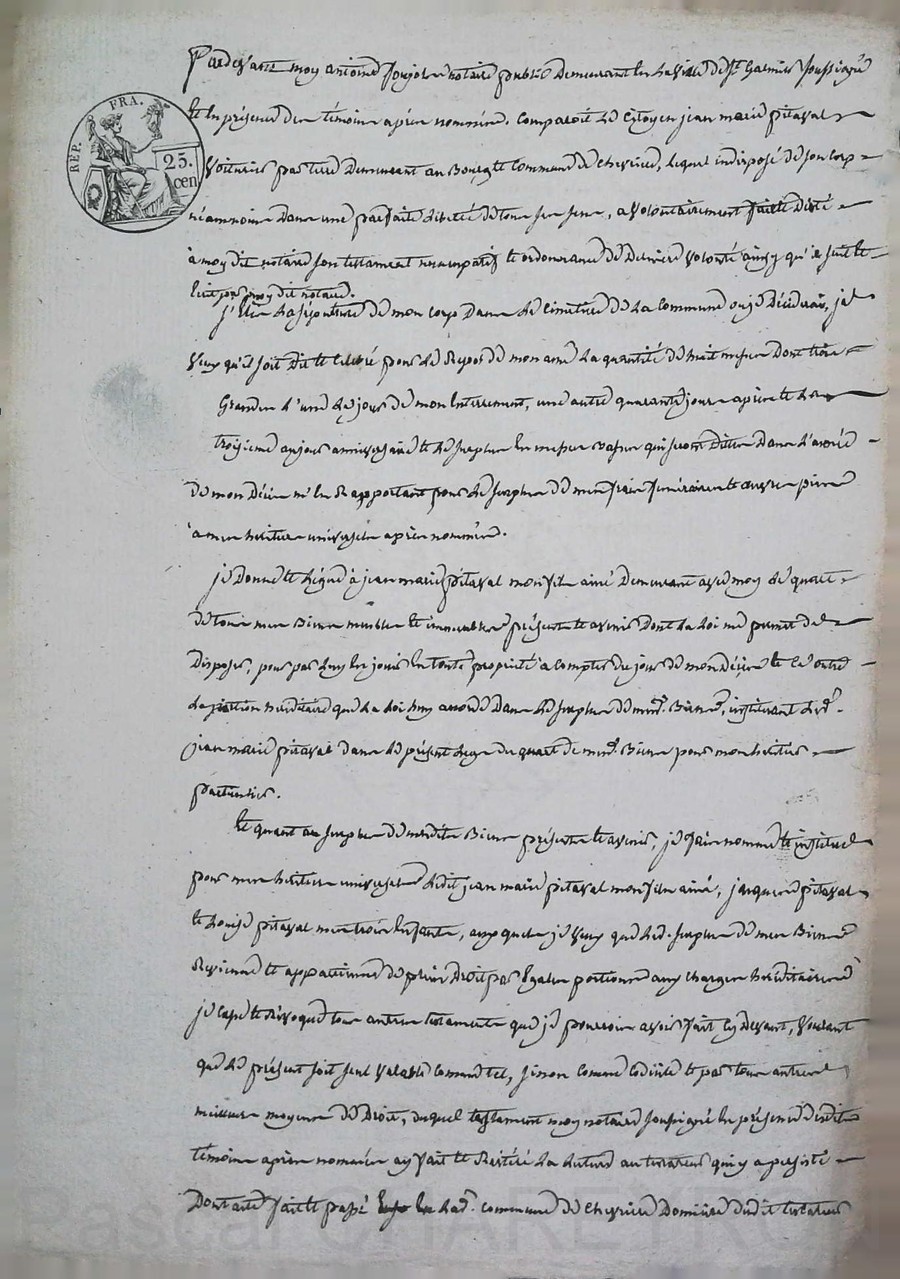 Pardevant moy antoine notaire public Demeurant en la ville de St Galmier soussigné
et en présence des témoins après nommés. Comparoit le Citoyen jean marie pitaval
REP. FRA.
25. cen
voiturier par terre Demeurant au Bourg et Commune de Chevrieres, lequel indisposé de son corps
néanmoins Dans une parfaite liberté de tous ses sens, a volontairement fait et Dicté
à moy dit notaire son testament nuncupatif et ordonnance de Derniere volonté ainsy qu'il suit et
écrit par moy dit notaire.
j'Elis la sépulture de mon corps Dans le Cimetiere de la Commune ou je Décéderais, je
veux qu'il soit Dit et Célébré pour le Repos de mon ame la quantité de messes Dont trois
Grandes l'une le jour de mon Enterrement, une autre quarante jours après et la
troisieme au jour anniversaire et le surplus en messes basses qui seront Dittes Dans l'année
de mon Décès m'en Rapportant pour le surplus de mes frais funéraires et œuvres pies
à mes héritiers universels après nommés.
je Donne et Légue à jean marie pitaval mon fils ainé Demeurant avec moy le quart
de tous mes Biens meubles et immeubles présents et avenir Dont la Loi me permet de
Disposer, pour par luy en jouir En toute propriété à compter du jour de mon décès et ce outre
la portion héréditaire que la Loi luy accorde Dans le surplus de mesd. Biens, instituant led.
jean marie pitaval dans le présent legs du quart de mesd. Biens pour mon héritier
particulier.
et quant au surplus de mesdits Biens présents et avenir, je fais nomme et institue
pour mes héritiers universels ledit jean marie pitaval mon fils ainé, jacques pitaval
et Louise pitaval mes trois Enfants, auxquels je veux que led. surplus de mes Biens
Revienne et appartienne de plein Droit par Egales portions aux charges héréditaires
je casse et Révoque tous autres testaments que je pourrois avoir fait Cy Devant, voulant
que le présent soit seul valable comme tel, sinon comme codicile et par tous autres
meilleurs moyens de Droit, duquel testament moy notaire soussigné en présence desdits
témoins après nommés ay fait et Réitéré la lecture au testateur qui y a persisté
Dont acte fait et passé en lad. commune de Chevrieres Domicile dudit testateur
Pascal CHAREYRON